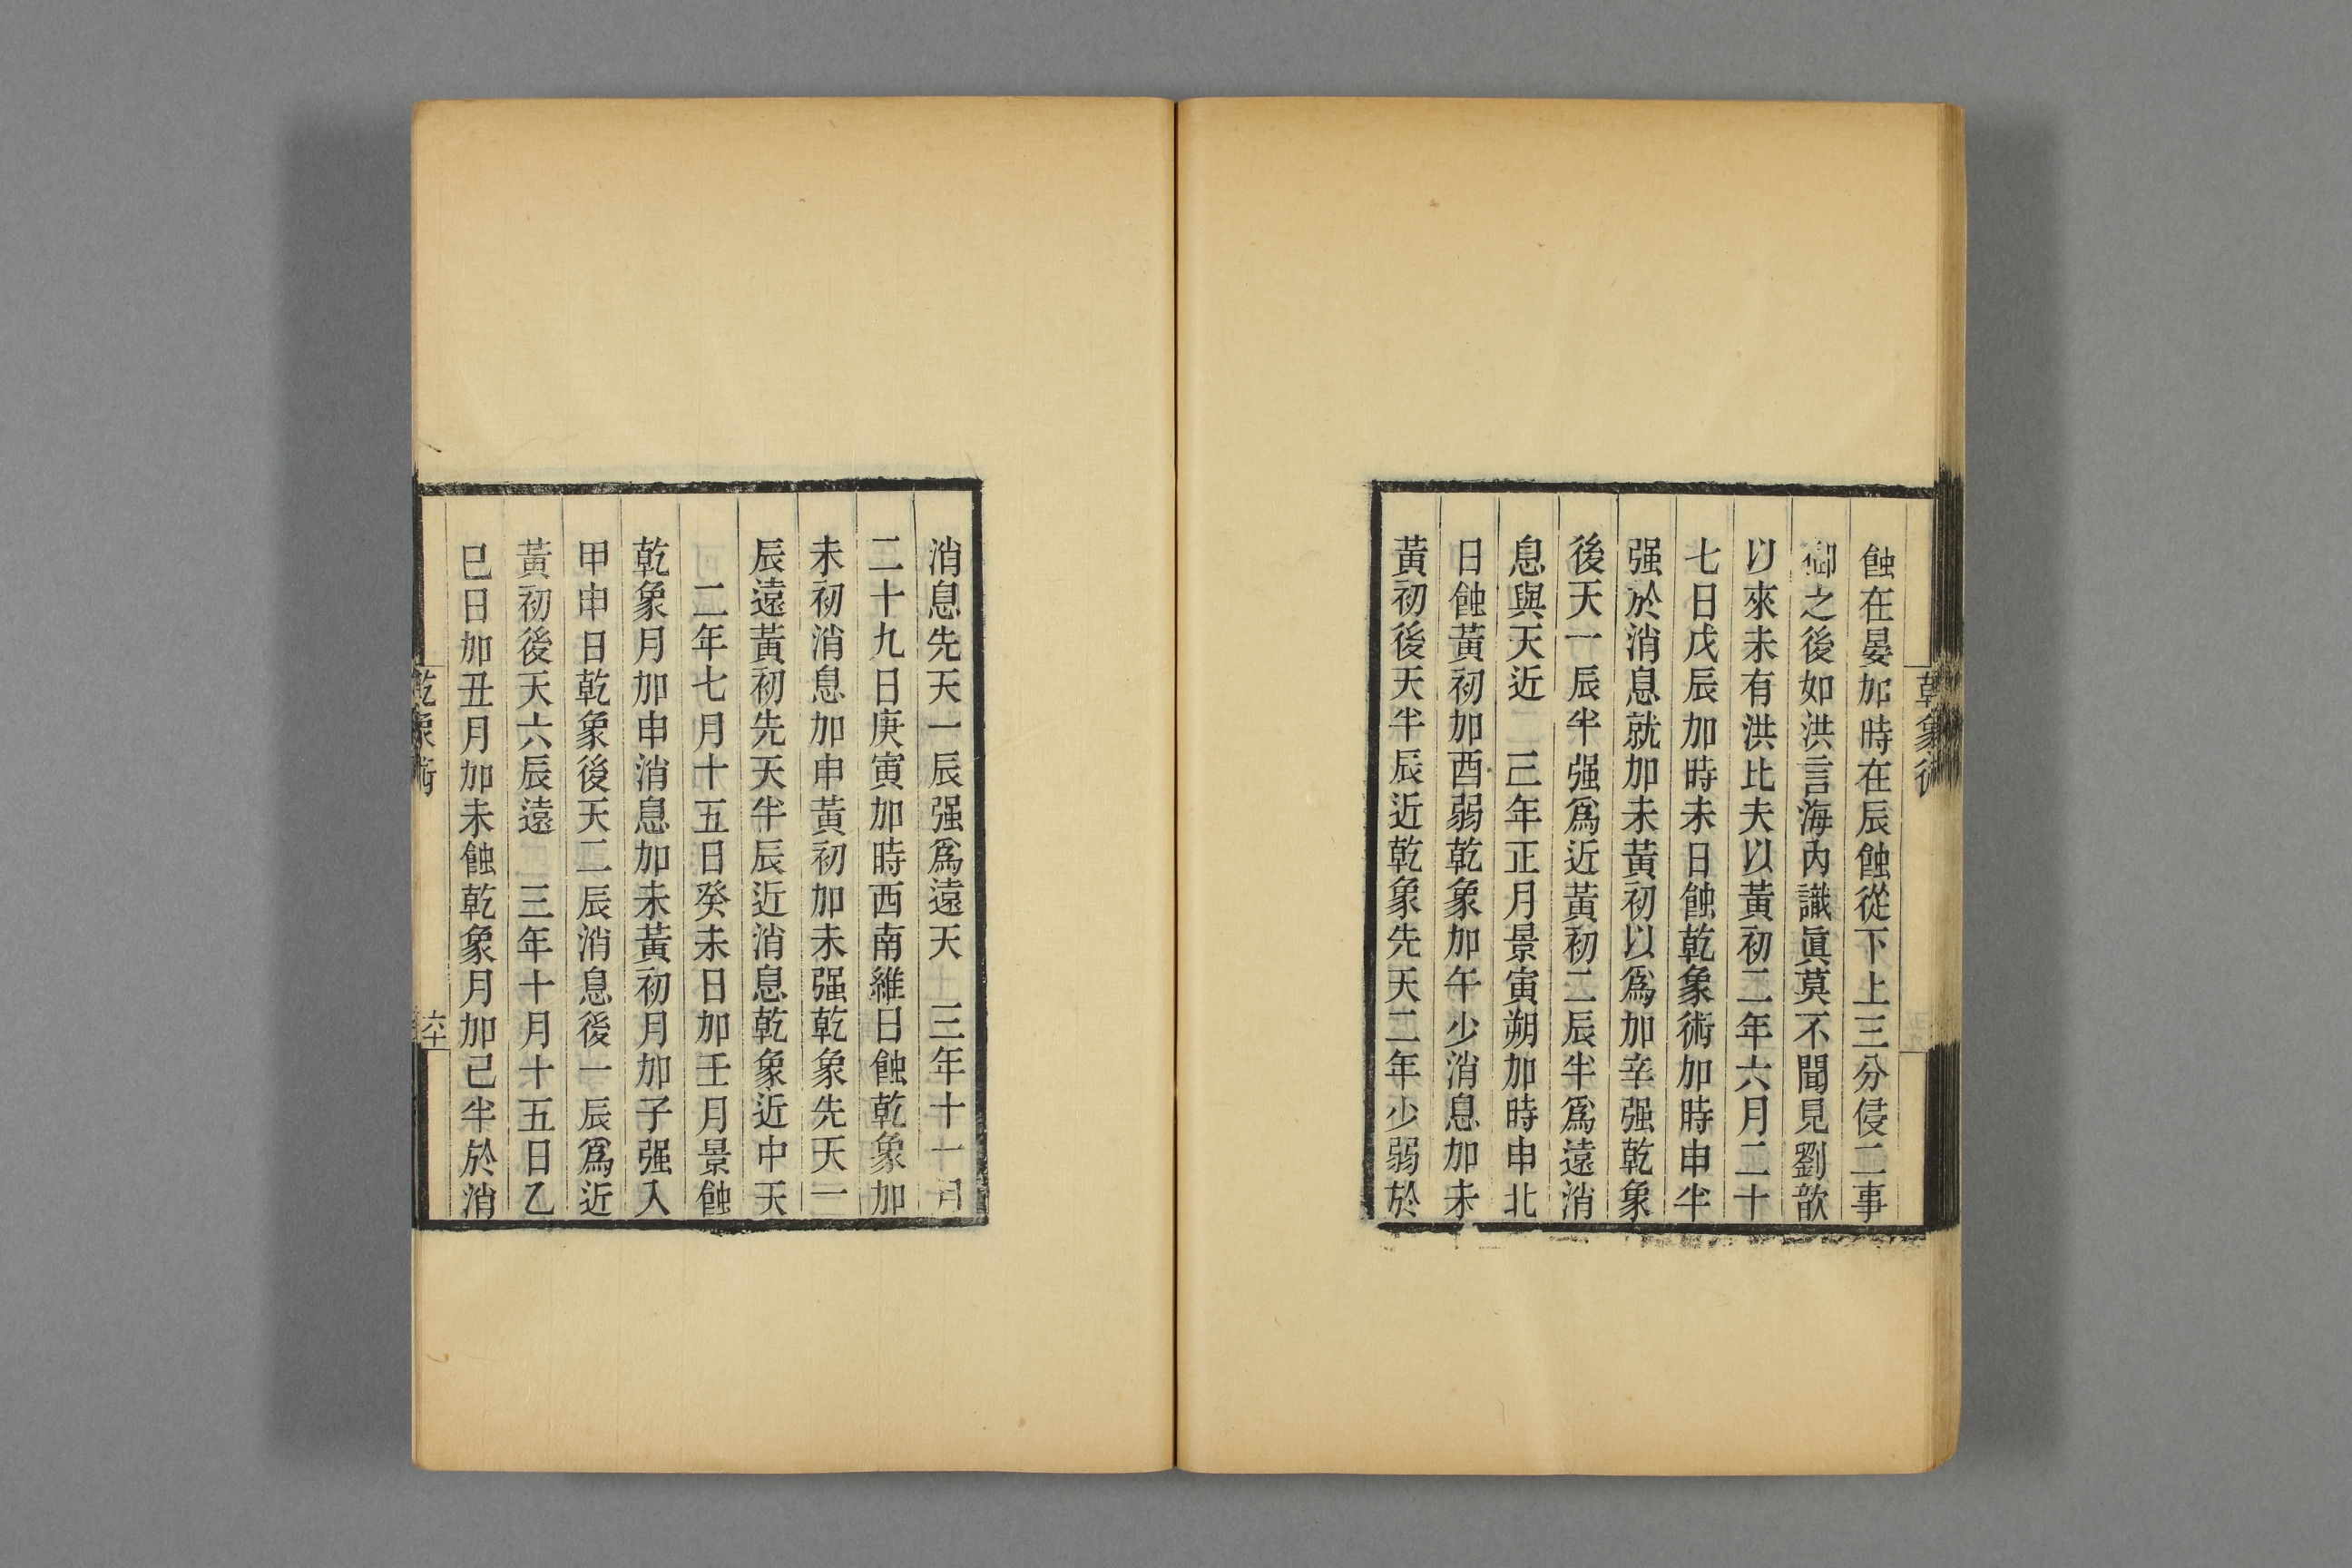 乾象術
蝕在晏加時在辰蝕從下上三分侵二事
御之後如洪言海內識眞莫不聞見劉歆
以來未有洪比夫以黃初二年六月二十
七日戊辰加時未日蝕乾象術加時申半
强於消息就加未黃初以爲加辛强乾象
後天一辰半强爲近黃初二辰半爲遠消
息與天近　三年正月景寅朔加時申北
日蝕黃初加酉弱乾象加午少消息加未
黃初後天半辰近乾象先天二年少弱於
消息先天一辰强爲遠天　三年十一月
二十九日庚寅加時西南維日蝕乾象加
未初消息加申黃初加未强乾象先天一
辰遠黃初先天半辰近消息乾象近中天
二年七月十五日癸未日加壬月景蝕
乾象月加申消息加未黃初月加子强入
甲申日乾象後天二辰消息後一辰爲近
黃初後天六辰遠　三年十月十五日乙
巳日加丑月加未蝕乾象月加己半於消
乾象術